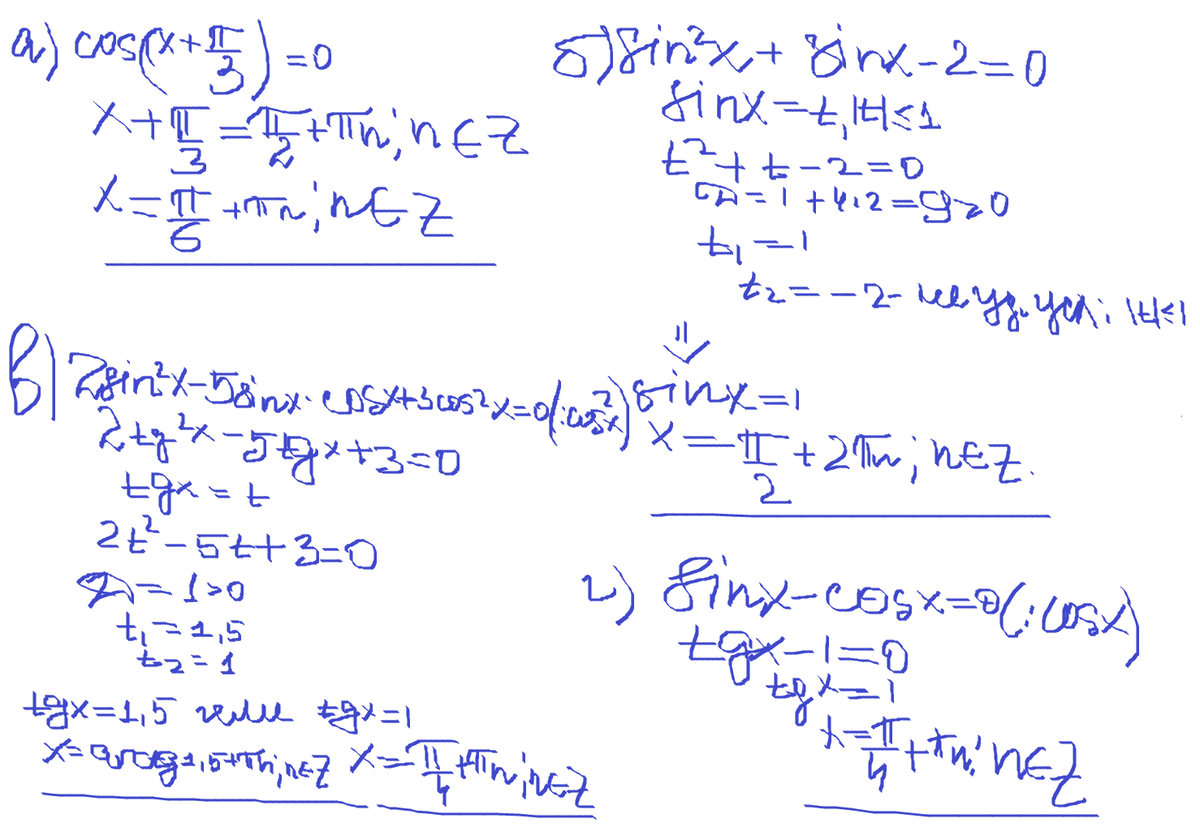 а) cos(x+π/3)=0
x+π/3=π/2+πn; n∈Z
x=π/6+πn; n∈Z
б) sin²x+sinx-2=0
sinx=t, |t|≤1
t²+t-2=0
D=1+4·2=9>0
t₁=1
t₂=-2- не уд. усл. |t|≤1
⇓
sinx=1
x=π/2+2πn; n∈Z.
в) 2sin²x-5sinx·cosx+3cos²x=0(:cos²x)
2tg²x-5tgx+3=0
tgx=t
2t²-5t+3=0
D=1>0
t₁=1,5
t₂=1
tgx=1,5 или tgx=1
x=arctg1,5+πn; n∈Z x=π/4+πn; n∈Z
г) sinx-cosx=0(:cosx)
tgx-1=0
tgx=1
x=π/4+πn; n∈Z